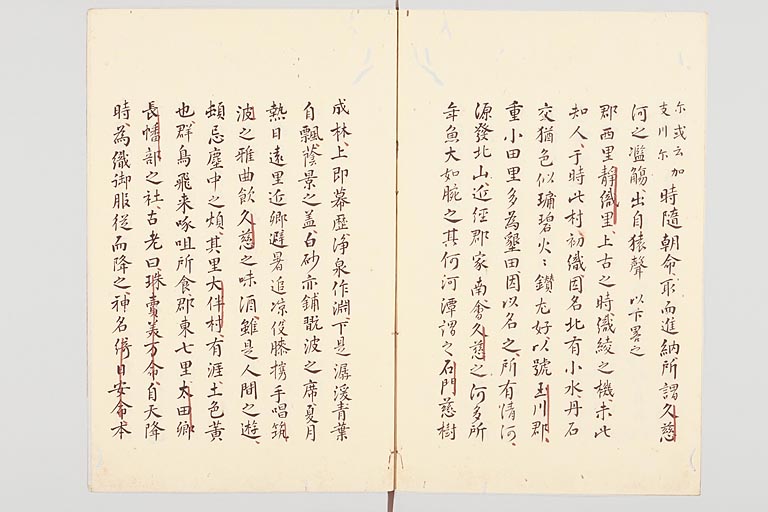 尓或云加
支川尓
時隨朝命取而進納所謂久慈
河之濫觴出自猿聲 以下畧之
郡西里靜織里上古之時織綾之機未此
知人于時此村初織因名北有小水丹石
交猶色似㻞碧火〻鑽尤好以號玉川郡
重小田里多為墾田因以名之所有清河
源發北山近径郡家南會久慈之河多所
年魚大如腕之其何河潭謂之石門慈樹
成林上即幕歷浄泉作淵下是潺湲青葉
自飄蔭景之盖白砂亦鋪翫波之席夏月
熱日遠里近鄉避暑追凉促膝携手唱筑
波之雅曲飲久慈之味酒雖是人間之遊
頓忘塵中之煩其里大伴村有涯土色黄
也群鳥飛来啄咀所食郡東七里太田鄉
長幡部之社古老曰珠賣美万命自天降
時為織御服從而降之神名綺日安命本